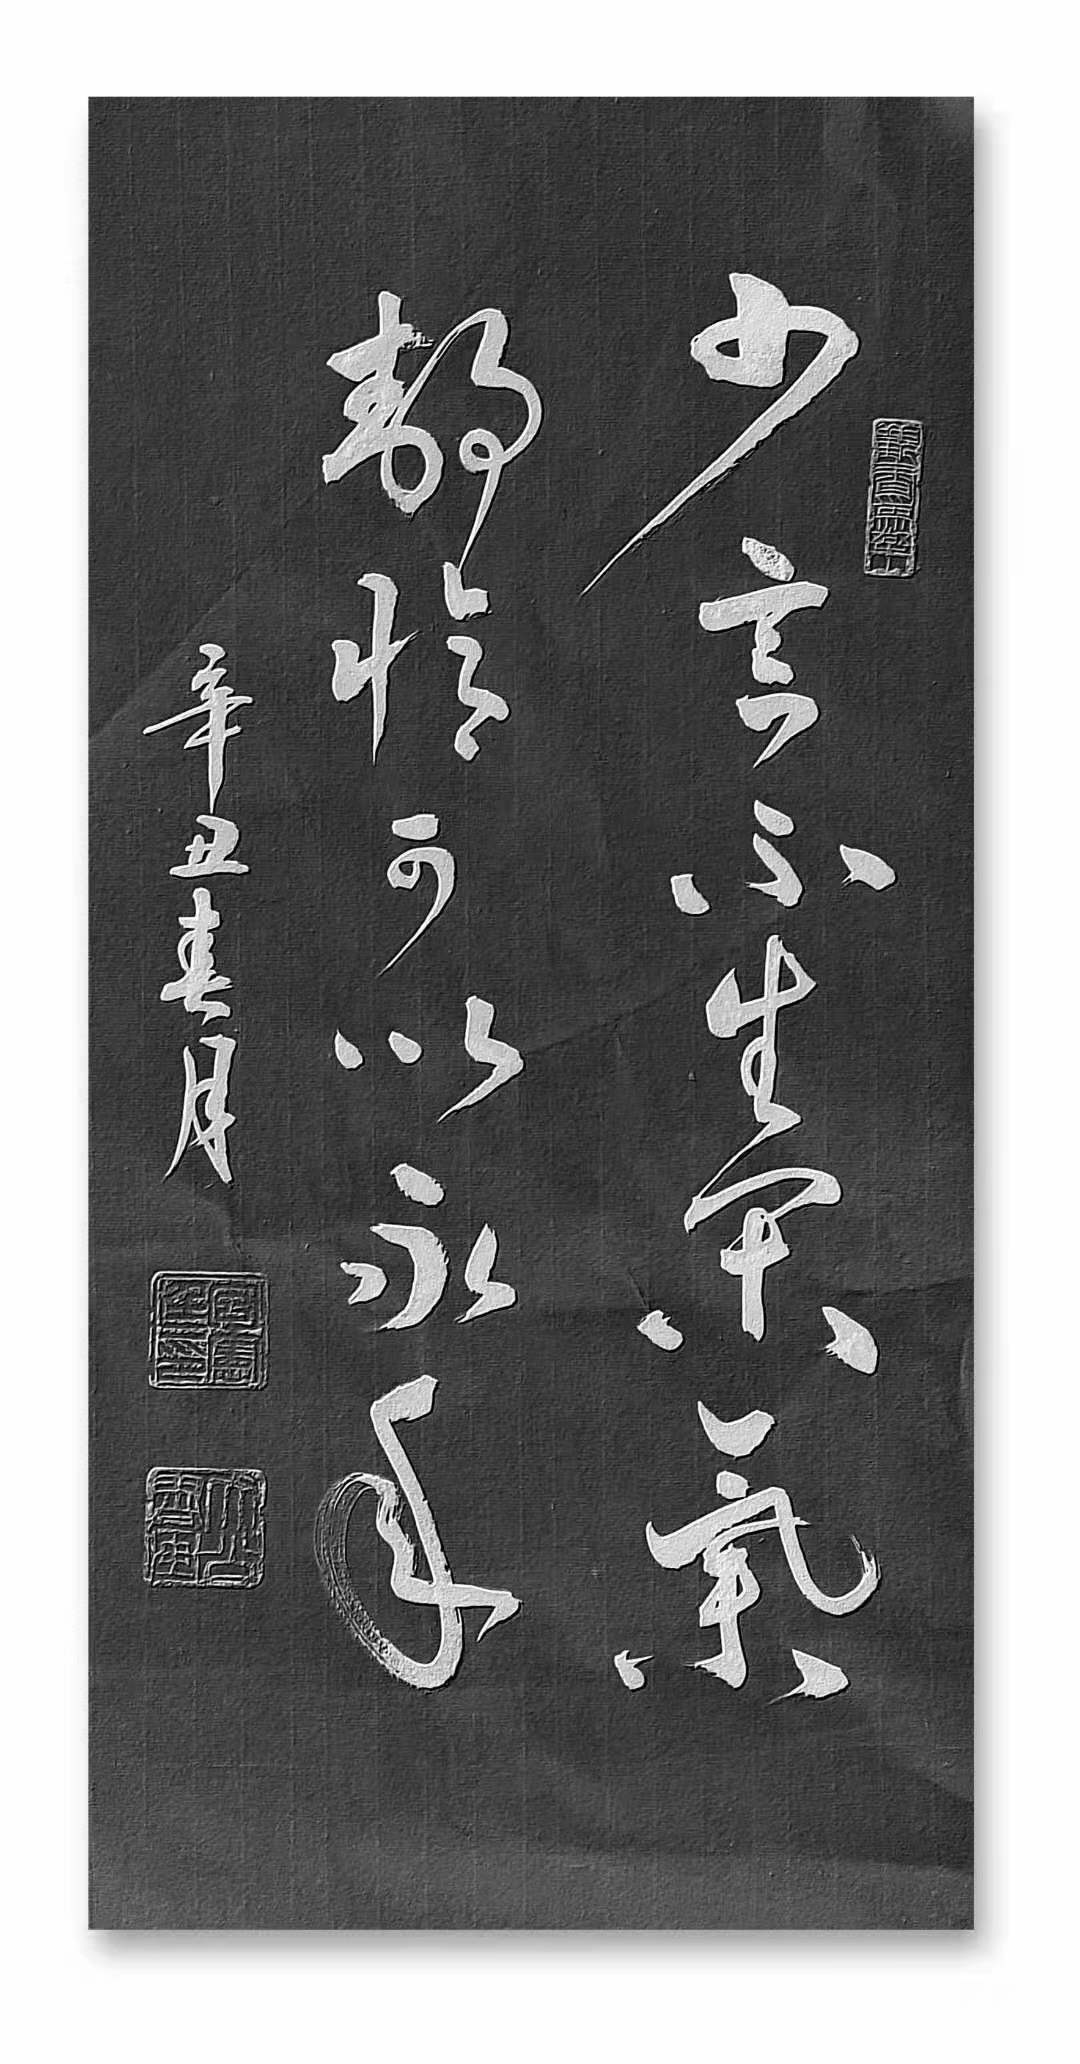 少言不生閑氣
靜修可以永年
辛丑春月